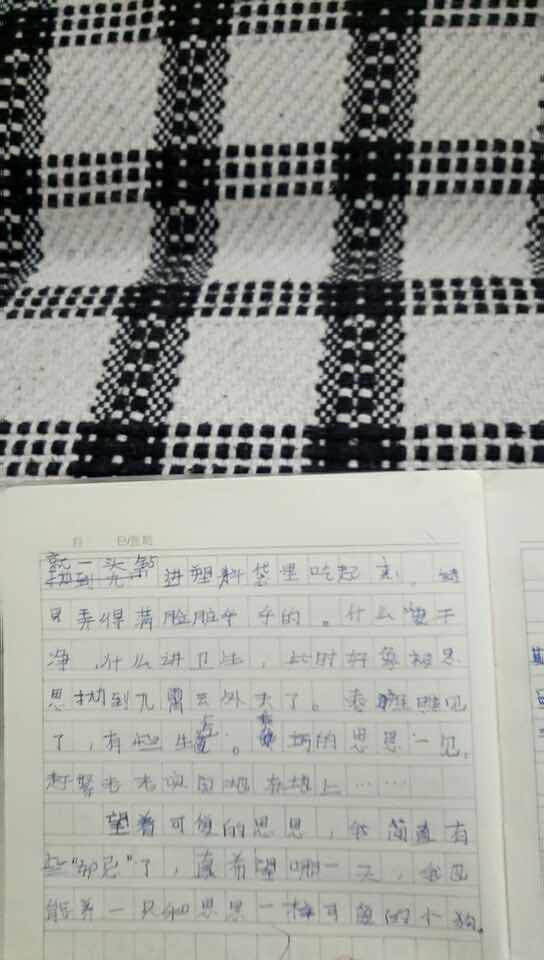 日 日/DATE
就一头钻进塑料袋里吃起来,结
果弄得满脸脏乎乎的。什么要干
净,什么讲卫生,此时好象被思
思抛到九霄云外去了。表姐瞧见
了,有些生气。乖巧的思思一见,
赶紧老老实实地在墙上……
望着可爱的思思,我简直有
些“妒忌”了,真希望哪一天,我也
能养一只和思思一样可爱的小狗。